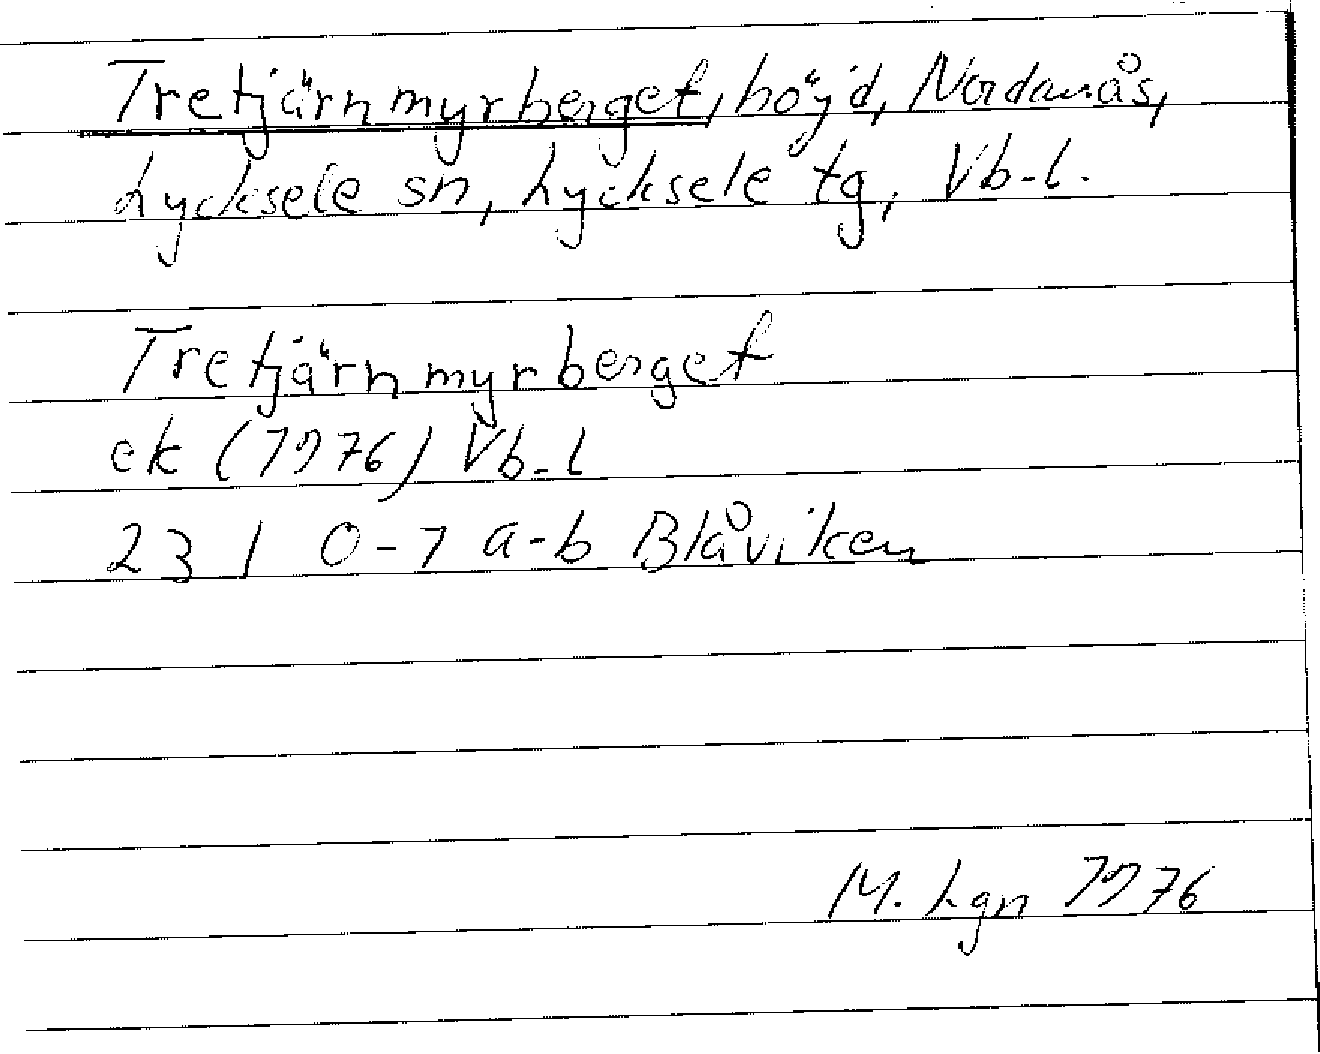 Tretjärnmyrberget, höjd, Nordanås,
Lycksele sn, Lycksele tg, Vb-l.
Tretjärnmyrberget
ek (1976) Vb-l
23 I 0-1 a-b Blåviken
M. Lgn 1976